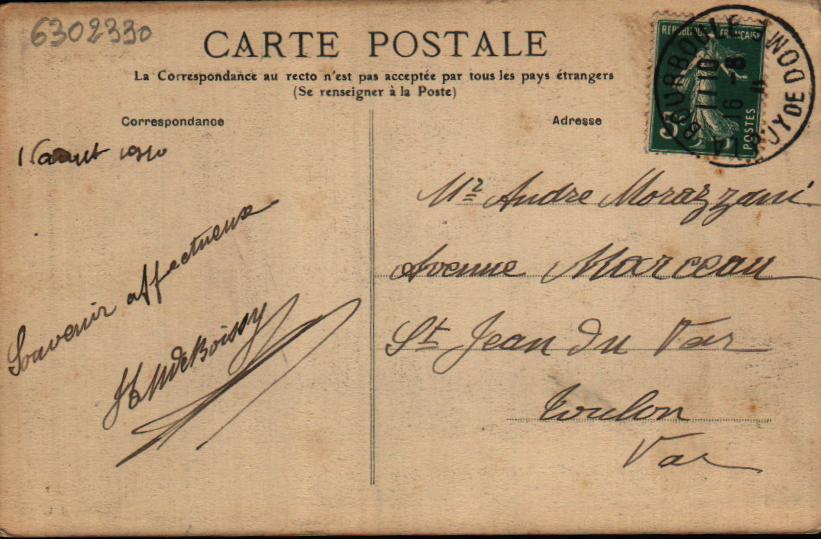 6302330
CARTE POSTALE
La Correspondance au recto n'est pas acceptée par tous les pays étrangers
(Se renseigner à la Poste)
Correspondance
Adresse
REPUBLIQUE FRANÇAISE
5c
POSTES
BOURBOULE PUY DE DOME
16 -8
août 1910
Souvenir affectueux
Mr Andre Morazzani
Avenue Marceau
St Jean du Var
Toulon
Var